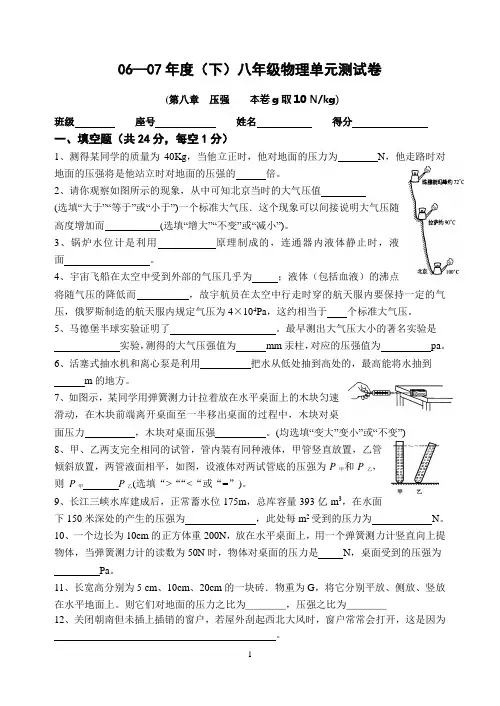 06—07年度（下）八年级物理单元测试卷
(第八章 压强 本卷g取10 N/kg)
班级 座号 姓名 得分
一、填空题（共24分，每空1分）
1、测得某同学的质量为 40Kg，当他立正时，他对地面的压力为 N，他走路时对
地面的压强将是他站立时对地面的压强的 倍。
2、请你观察如图所示的现象，从中可知北京当时的大气压值
(选填“大于”“等于”或“小于”)一个标准大气压．这个现象可以间接说明大气压随
高度增加而 (选填“增大”“不变”或“减小”)。
3、锅炉水位计是利用 原理制成的，连通器内液体静止时，液
面 。
4、宇宙飞船在太空中受到外部的气压几乎为 ；液体（包括血液）的沸点
将随气压的降低而 ，故宇航员在太空中行走时穿的航天服内要保持一定的气
压，俄罗斯制造的航天服内规定气压为 4×10⁴Pa，这约相当于 个标准大气压。
5、马德堡半球实验证明了 。最早测出大气压大小的著名实验是
实验,测得的大气压强值为 mm汞柱,对应的压强值为 pa。
6、活塞式抽水机和离心泵是利用 把水从低处抽到高处的，最高能将水抽到
m的地方。
7、如图示，某同学用弹簧测力计拉着放在水平桌面上的木块匀速
滑动，在木块前端离开桌面至一半移出桌面的过程中，木块对桌
面压力 ，木块对桌面压强 。(均选填“变大”变小”或“不变”)
8、甲、乙两支完全相同的试管，管内装有同种液体，甲管竖直放置，乙管
倾斜放置，两管液面相平，如图，设液体对两试管底的压强为P甲和P乙，
则 P甲 P乙(选填“>““<“或“=”)。
9、长江三峡水库建成后，正常蓄水位 175m，总库容量 393 亿m³，在水面
下150米深处的产生的压强为 ，此处每m²受到的压力为 N。
10、一个边长为10cm的正方体重200N，放在水平桌面上，用一个弹簧测力计竖直向上提
物体，当弹簧测力计的读数为50N时，物体对桌面的压力是 N，桌面受到的压强为
Pa。
11、长宽高分别为5 cm、10cm、20cm的一块砖．物重为G，将它分别平放、侧放、竖放
在水平地面上。则它们对地面的压力之比为 ，压强之比为
12、关闭朝南但未插上插销的窗户，若屋外刮起西北大风时，窗户常常会打开，这是因为
。
珠穆朗玛峰约72℃
拉萨约90℃
北京 100℃
甲 乙
1